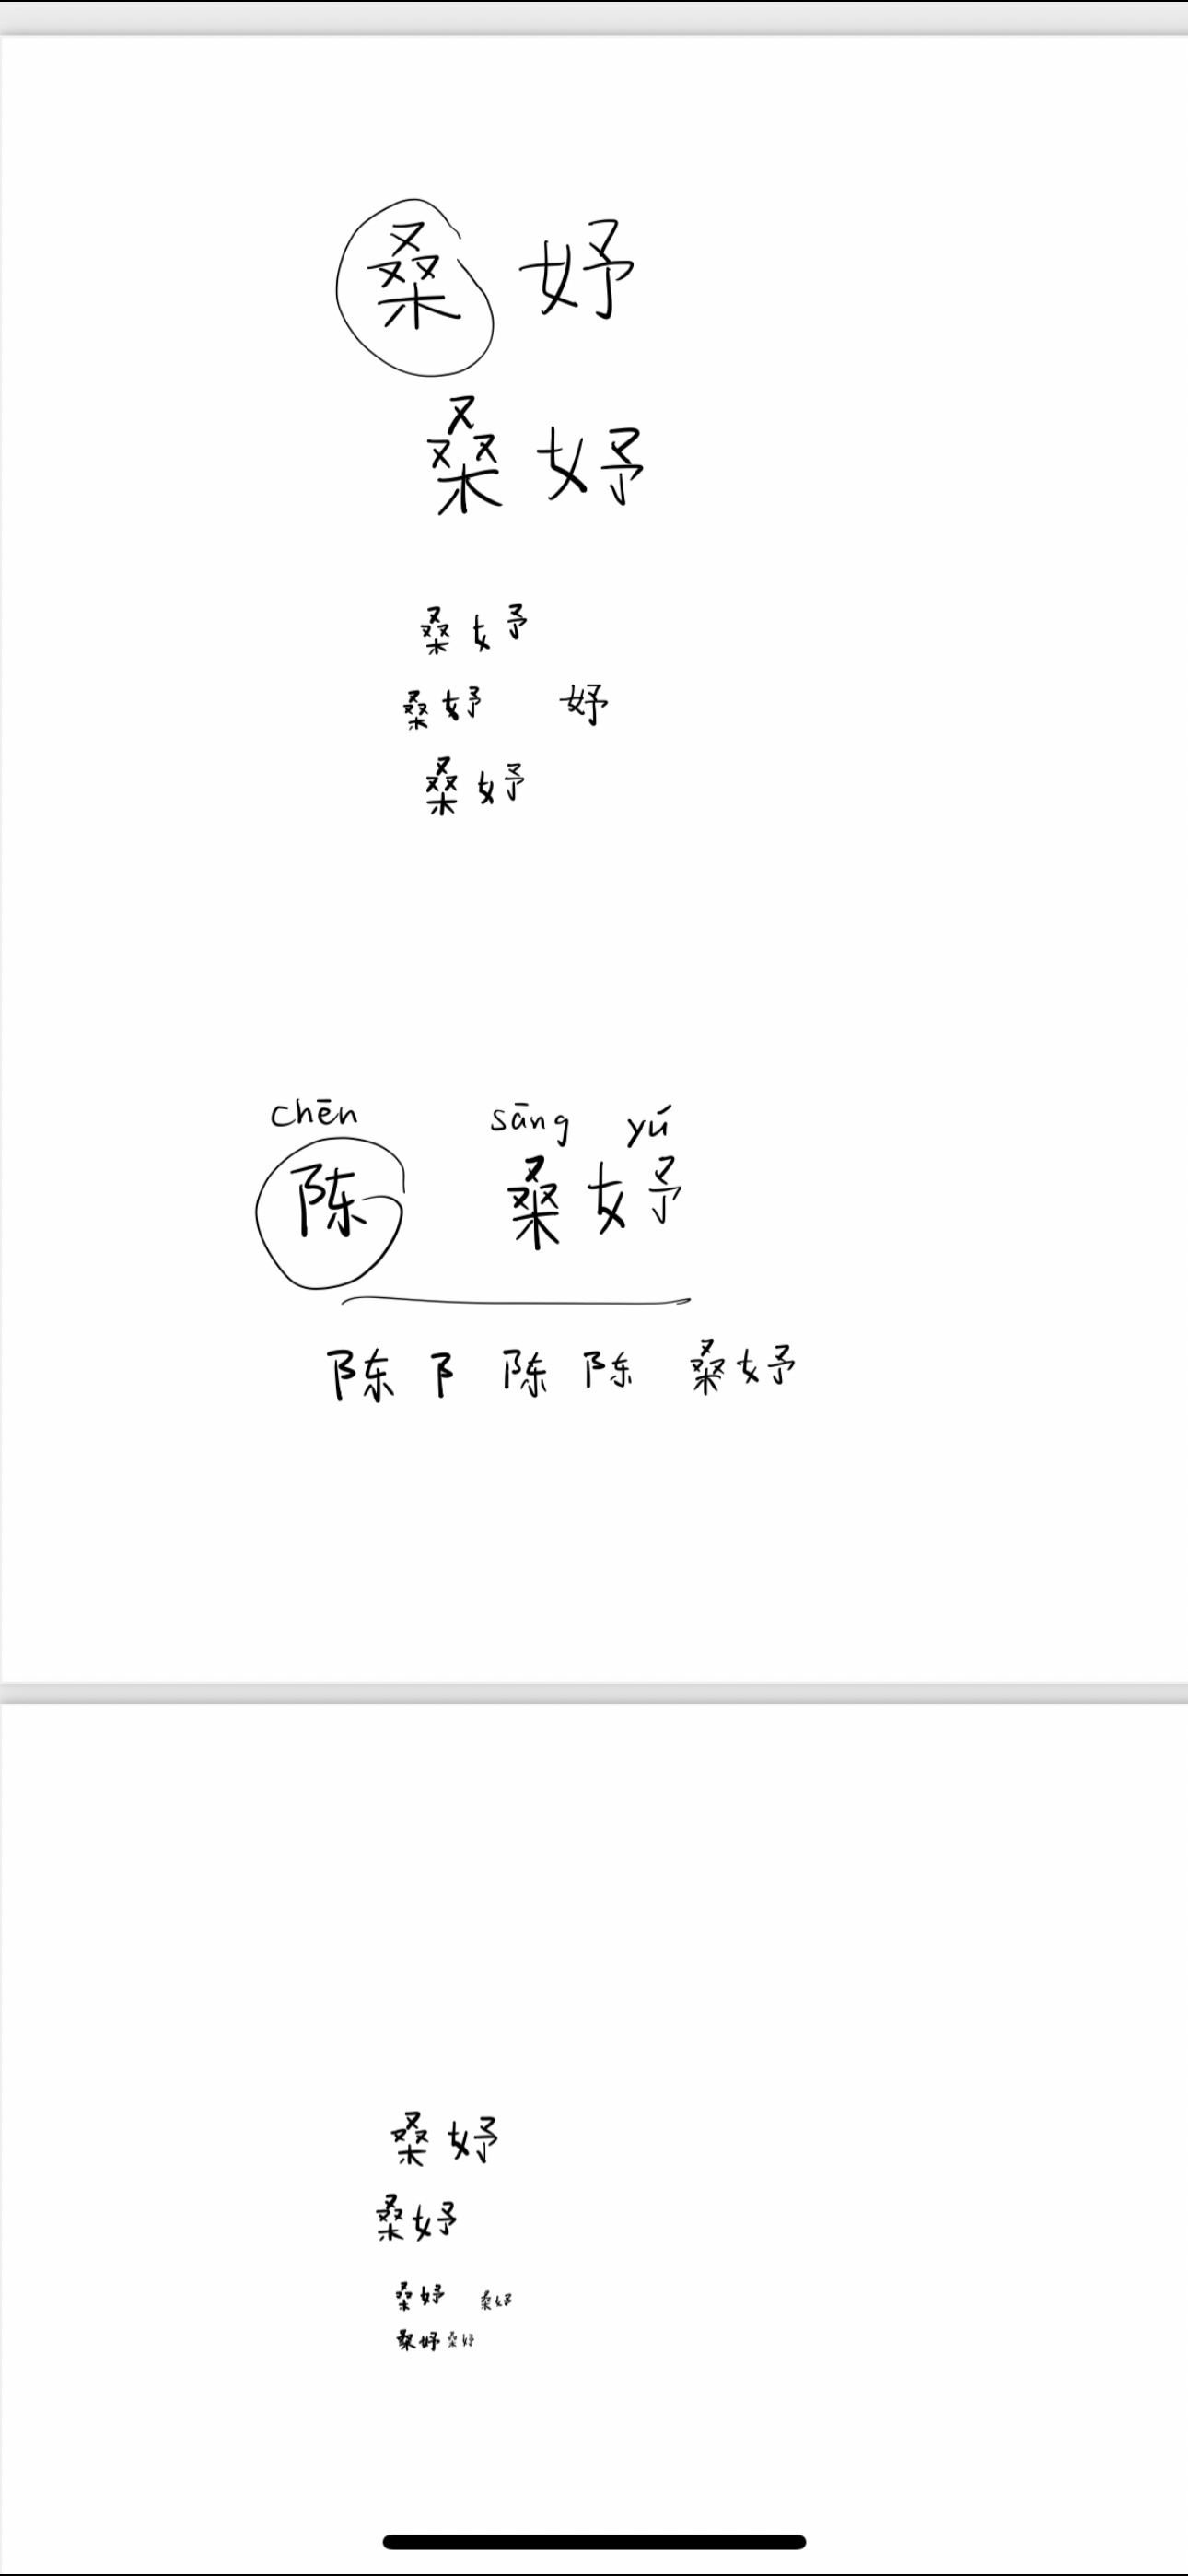 桑妤
桑妤
桑妤
桑妤 妤
桑妤
chēn sāng yú
陈 桑妤
陈 阝 陈 陈 桑妤
桑妤
桑妤
桑妤 桑妤
桑妤 桑妤